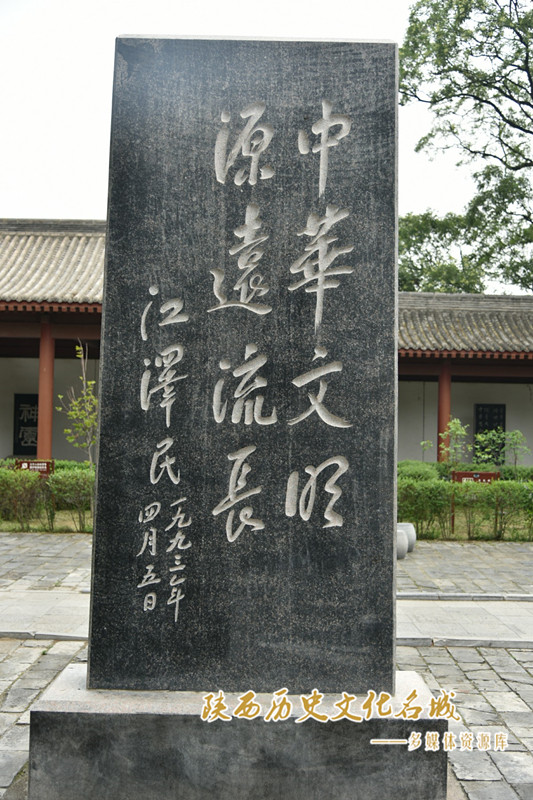 中華文明
源遠流長
江澤民
一九九三年
四月五日
陕西历史文化名城
——多媒体资源库